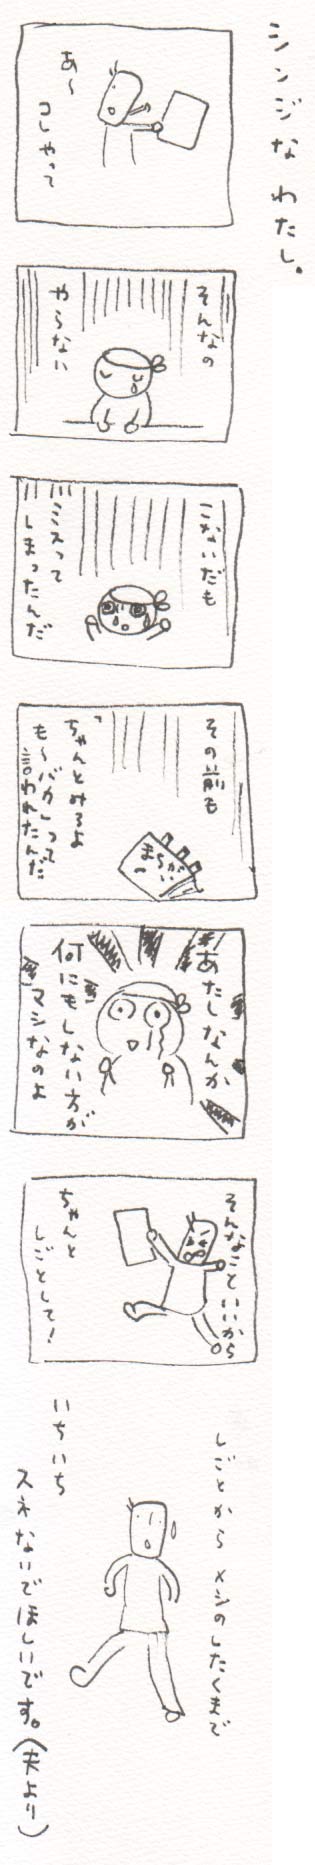 シンジなわたし。
あ〜
コレやって
そんなの
やらない
こないだも
ミスって
しまったんだ
その前も
「ちゃんとみろよ
も〜バカ」って
言われたんだ
まちがい
あたしなんか
何にもしない方が
マシなのよ
そんなこといいから
ちゃんと
しごとして!
しごとからメシのしたくまで
いちいち
スネないでほしいです。(夫より)